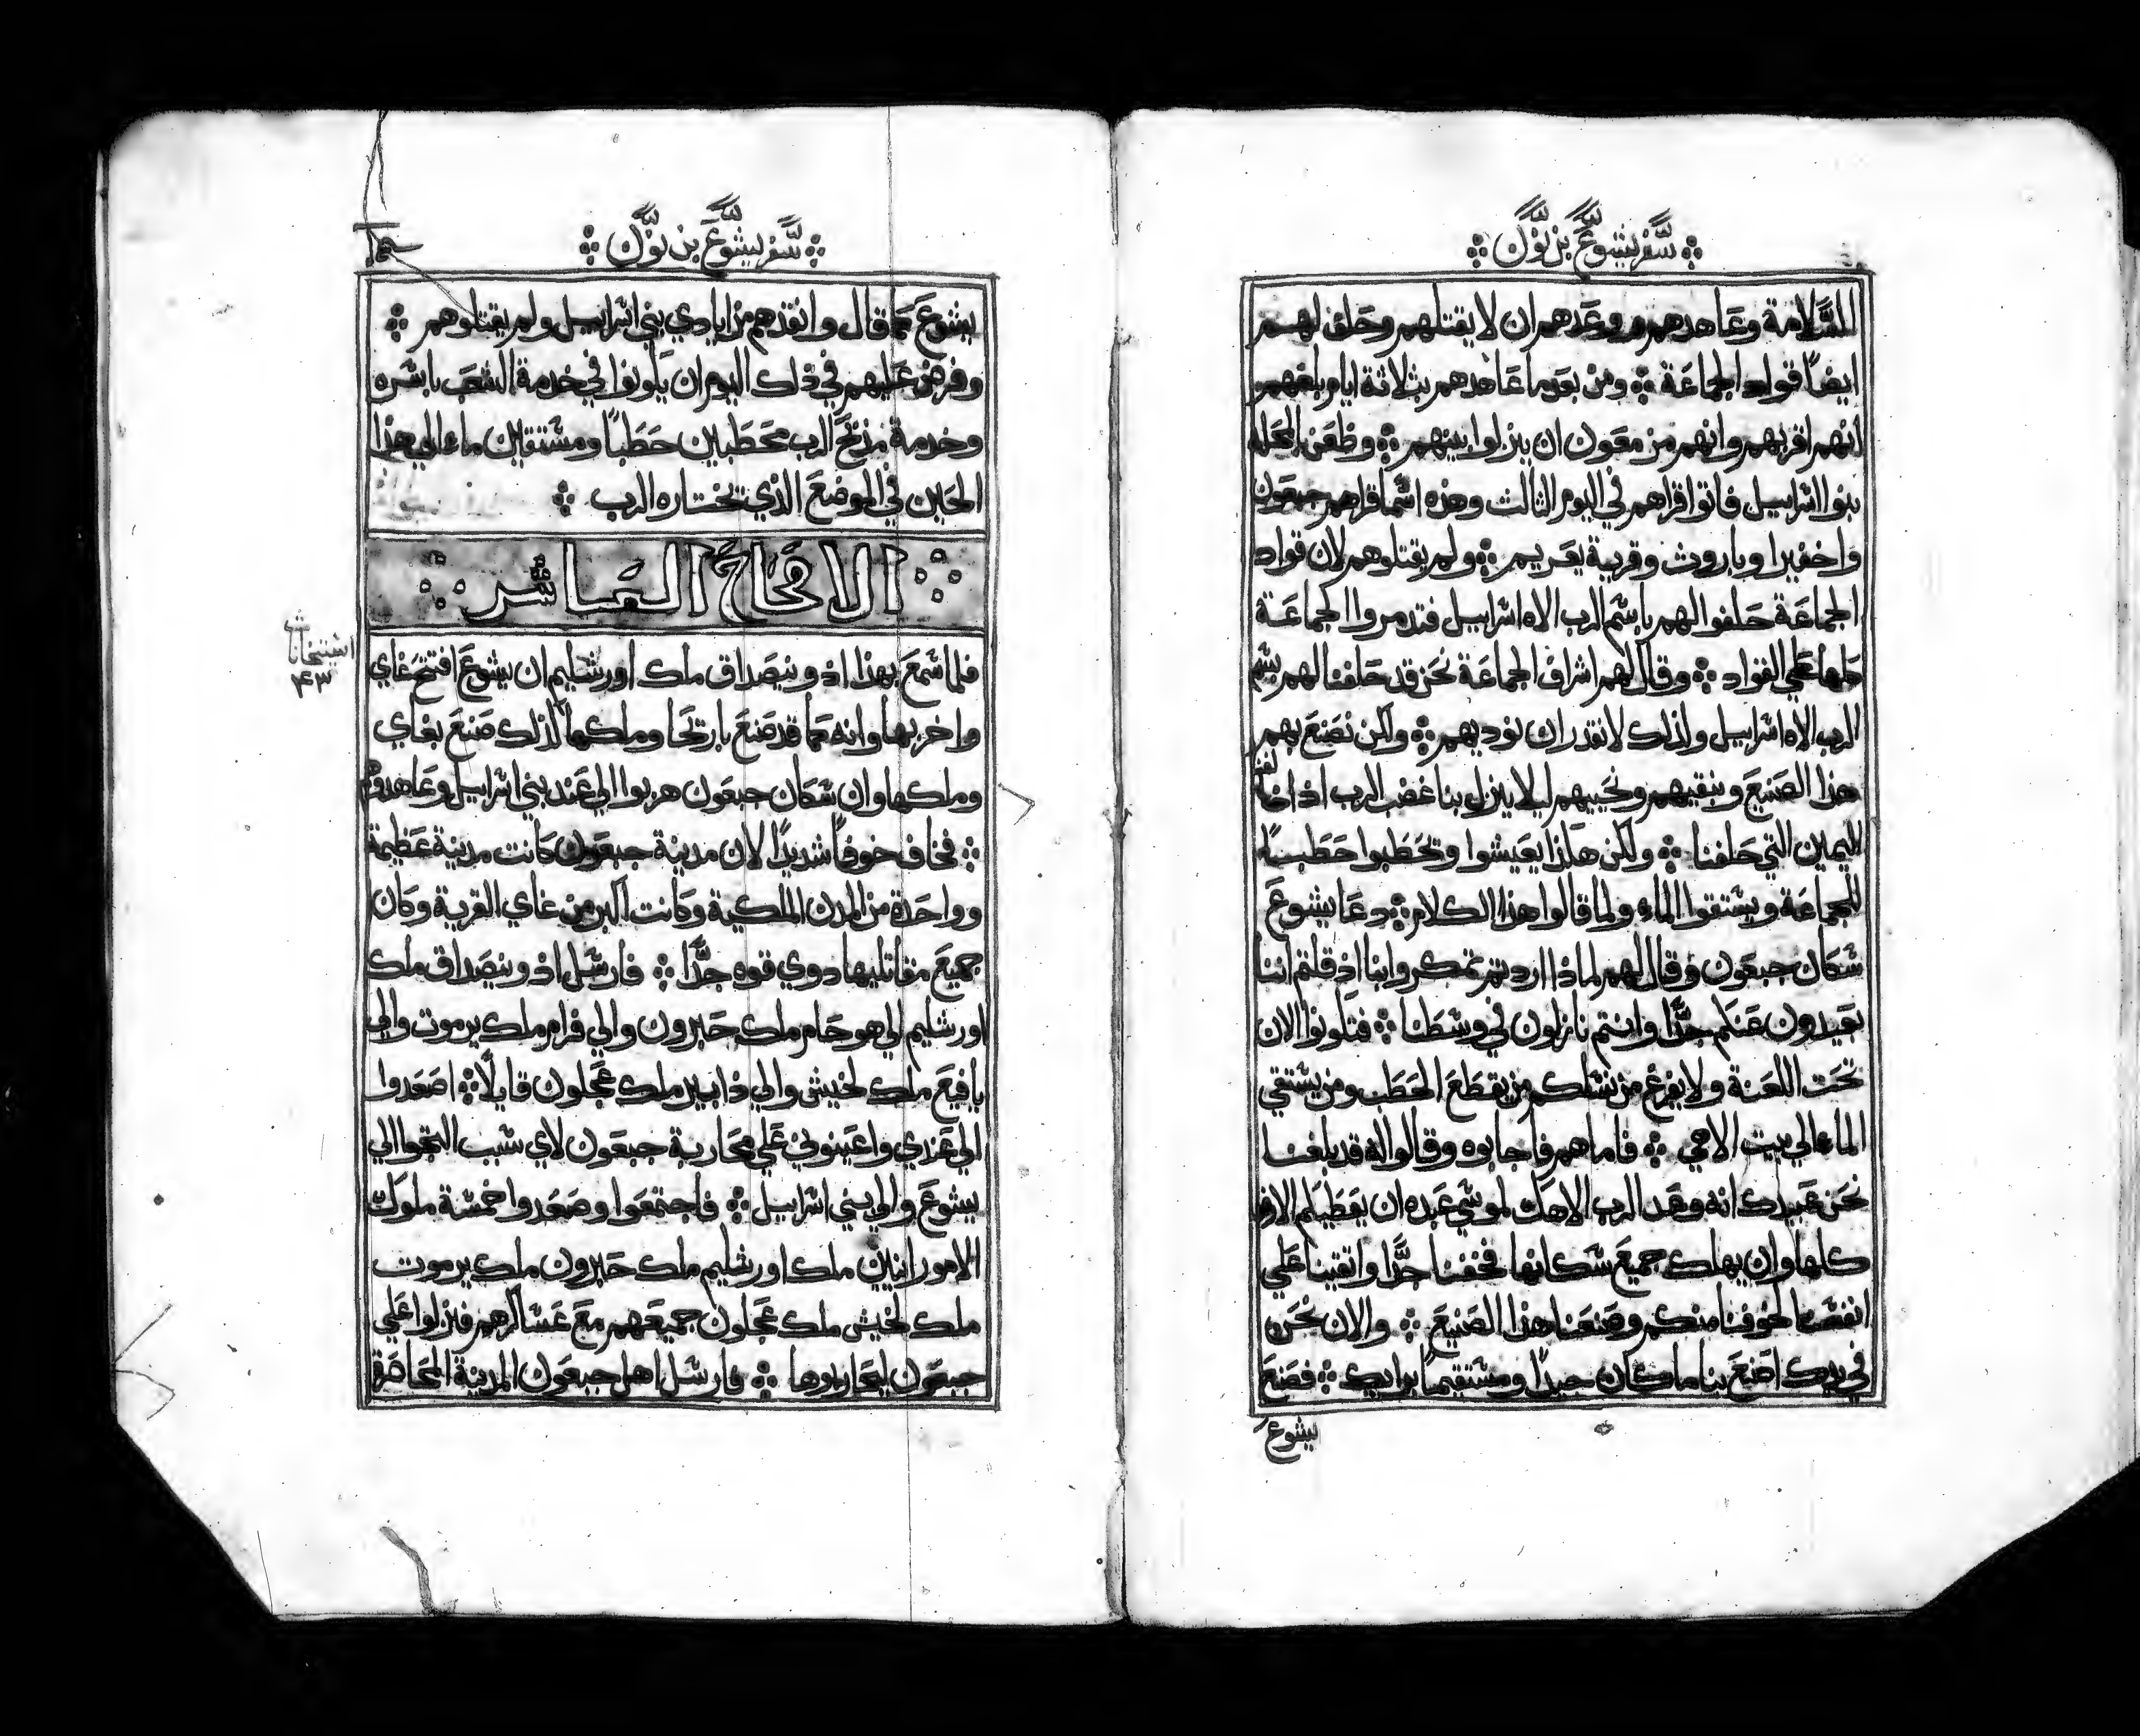 سفر يشوع بن نون
السلامة وعاهدهم ووعدهم ان لا يقتلهم وحلف لهم
ايضا قواد الجماعة ومن بعد ما عاهدهم بثلاثة ايام بلغهم
انهم اقربهم وانهم مزمعون ان ينزلوا بينهم وظعن المحله
بنوا اسراييل فاتوا قراهم في اليوم الثالث وهذه اسما قراهم جبعون
واخفيرا وباروث وقرية يعريم ولم يقتلوهم لان قواد
الجماعة حلفوا لهم باسم الرب الاه اسراييل فتدمروا الجماعة
كلها علي القواد وقال لهم اشراف الجماعة نحن قد حلفنا لهم بسم
الرب الاه اسراييل ولذلك لا نقدر ان نوديهم ولكن نصنع بهم
هذا الصنيع ونبقيهم ونحييهم ليلا ينزل بنا غضب الرب اذا خالفنا
اليمين التي حلفنا ولكن هكذا يعيشوا وتحطبوا حطبًا
للجماعة ويستقوا الماء ولما قالوا هذا الكلام دعا يشوع
سكان جبعون وقال لهم لماذا اردتم تمكروا بنا اذ قلتم اننا
بعيدون عنكم جدًّا وانتم نازلون في وسطنا فتكونوا الان
تحت اللعنة ولا يفرغ من نسلكم من يقطع الحطب ومن يستقي
الماء الي بيت الاهي فاما هم فاجابوه وقالوا له قد بلغنا
نحن عبيدك انه وعد الرب الاهك لموسي عبده ان يعطيكم الارض
كلها وان يهلك جميع سكانها فخفنا جدًّا واتقينا علي
انفسنا لخوفنا منكم وصنعنا هذا الصنيع والان نحن
في يدك اصنع بنا ما كان جيدًا ومستقيمًا برايك فصنع
يشوع
سفر يشوع بن نون
يشوع كما قال وانقذهم من ايادي بني اسراييل ولم يقتلوهم
وفرض عليهم في ذلك اليوم ان يكونوا في خدمة الشعب باسره
وخدمة مذبح الرب محطبين حطبًا ومستقين ماء الي هذا
الحين في الموضع الذي يختاره الرب
الاصحاح العاشر
فلما سمع بهذا ادونيصداق ملك اورشليم ان يشوع افتتح غاي
واخربها وانه كما قد صنع باريحا وملكها لذلك صنع بغاي
وملكها وان سكان جبعون هربوا الي عند بني اسراييل وعاهدوهم
فخاف خوفًا شديدًا لان مدينة جبعون كانت مدينة عظيمة
وواحدة من المدن الملكية وكانت اكبر من غاي القرية وكان
جميع مقاتليها دوي قوه جدًّا فارسل ادونيصداق ملك
اورشليم الي هوحام ملك حبرون والي فرام ملك يرموت والي
يافيع ملك لخيش والي دابير ملك عجلون قايلًا اصعدوا
الي عندي واعينوني علي محاربة جبعون لاي سبب التجوا الي
يشوع والي بني اسراييل فاجتمعوا وصعدوا خمسة ملوك
الامورانيين ملك اورشليم ملك حبرون ملك يرموت
ملك لخيش ملك عجلون جميعهم مع عساكرهم فنزلوا علي
جبعون ليحاربوها فارسل اهل جبعون المدينة المحاصرة